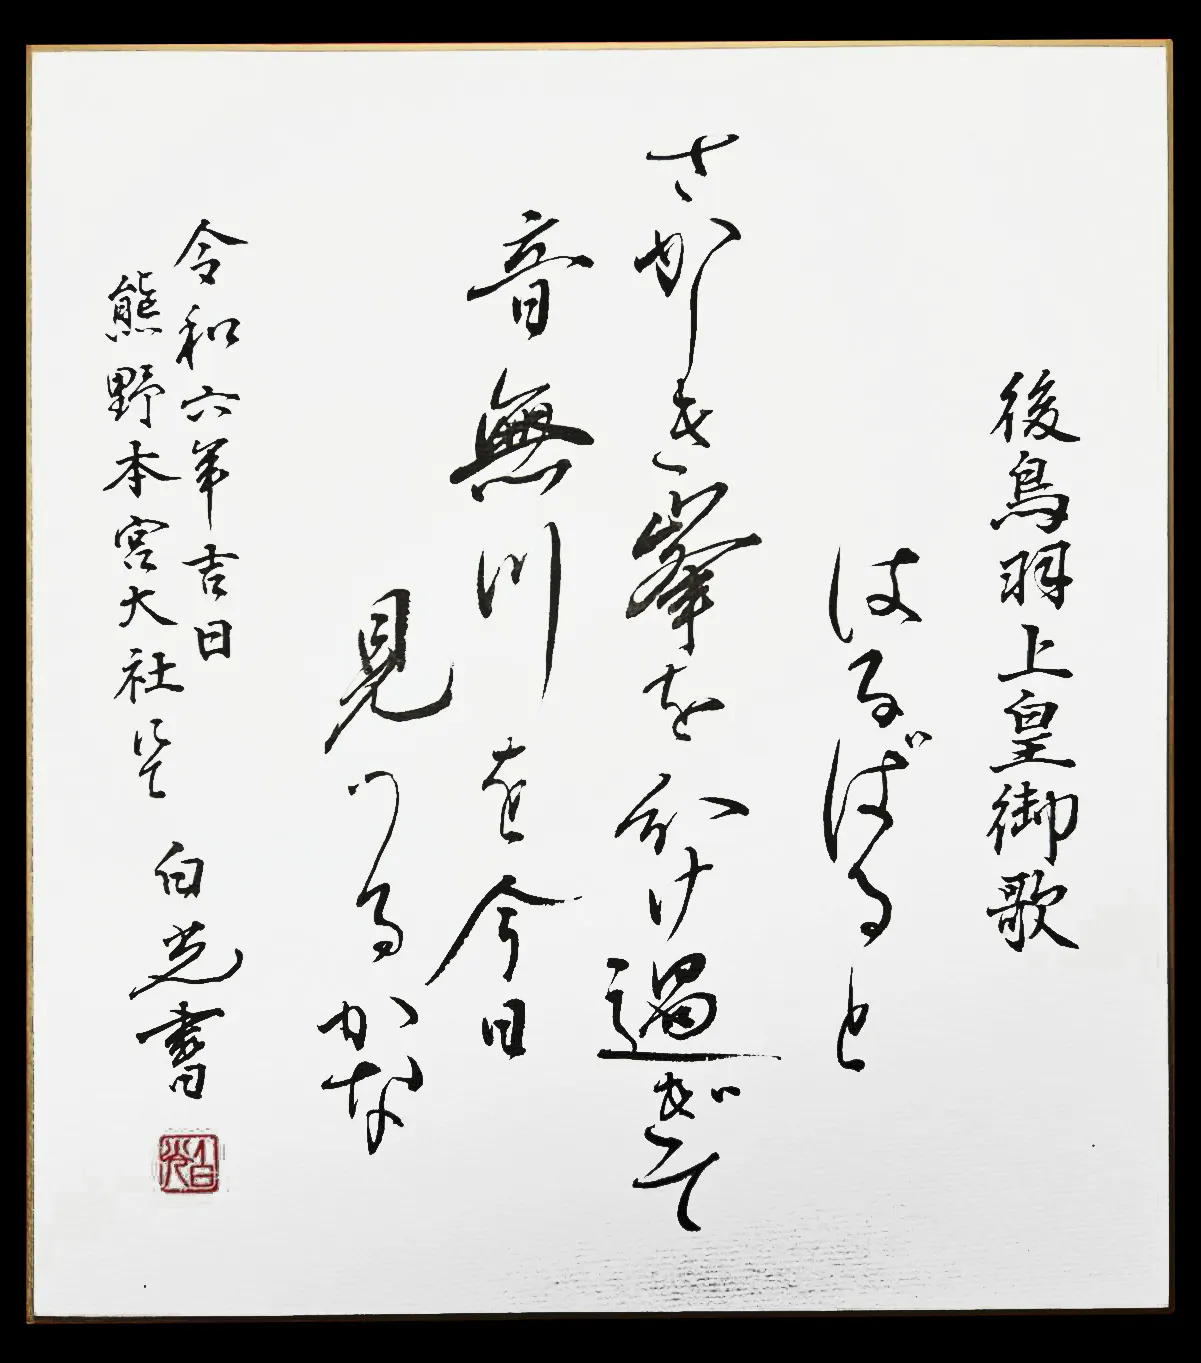 後鳥羽上皇御歌
はるばると
さかしき峯を分け過ぎて
音無川を今日
見つるかな
令和六年吉日
熊野本宮大社にて
白光書
白光